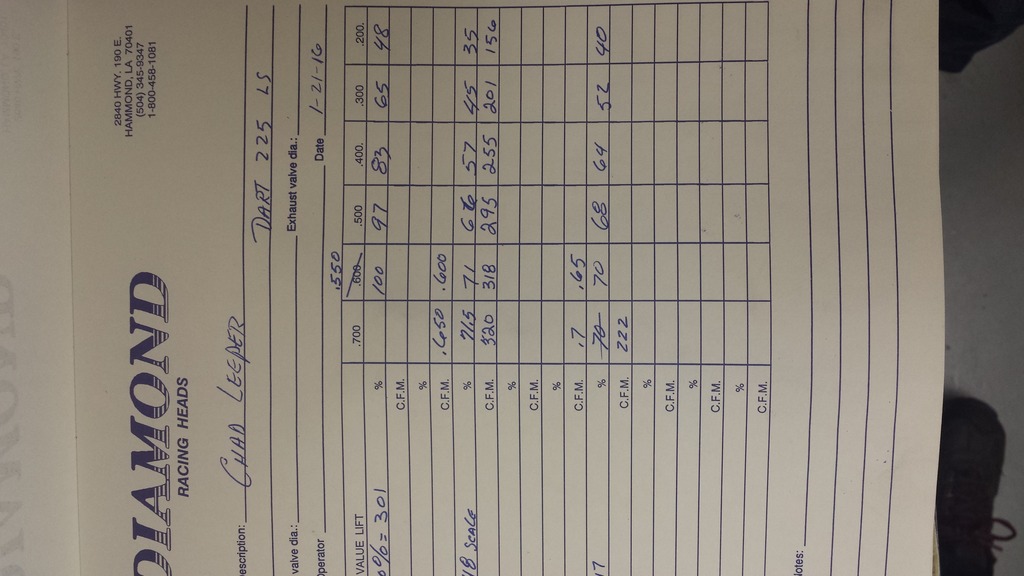 DIAMOND
RACING HEADS
2840 HWY. 190 E.
HAMMOND, LA 70401
(504) 345-9347
1-800-458-1081
escription: CHAD LEEPER DART 225 LS
valve dia.: Exhaust valve dia.:
Operator Date 1-21-16
.550
VALUE LIFT .700 .600 .500 .400 .300 .200
% = 301 % 100 97 83 65 48
C.F.M.
%
C.F.M. .650 .600
18 SCALE % 71.5 71 66 57 45 35
C.F.M. 320 318 295 255 201 156
%
C.F.M.
%
C.F.M. .7 .65
17 % 70 70 68 64 52 40
C.F.M. 222
%
C.F.M.
%
C.F.M.
%
C.F.M.
lotes: